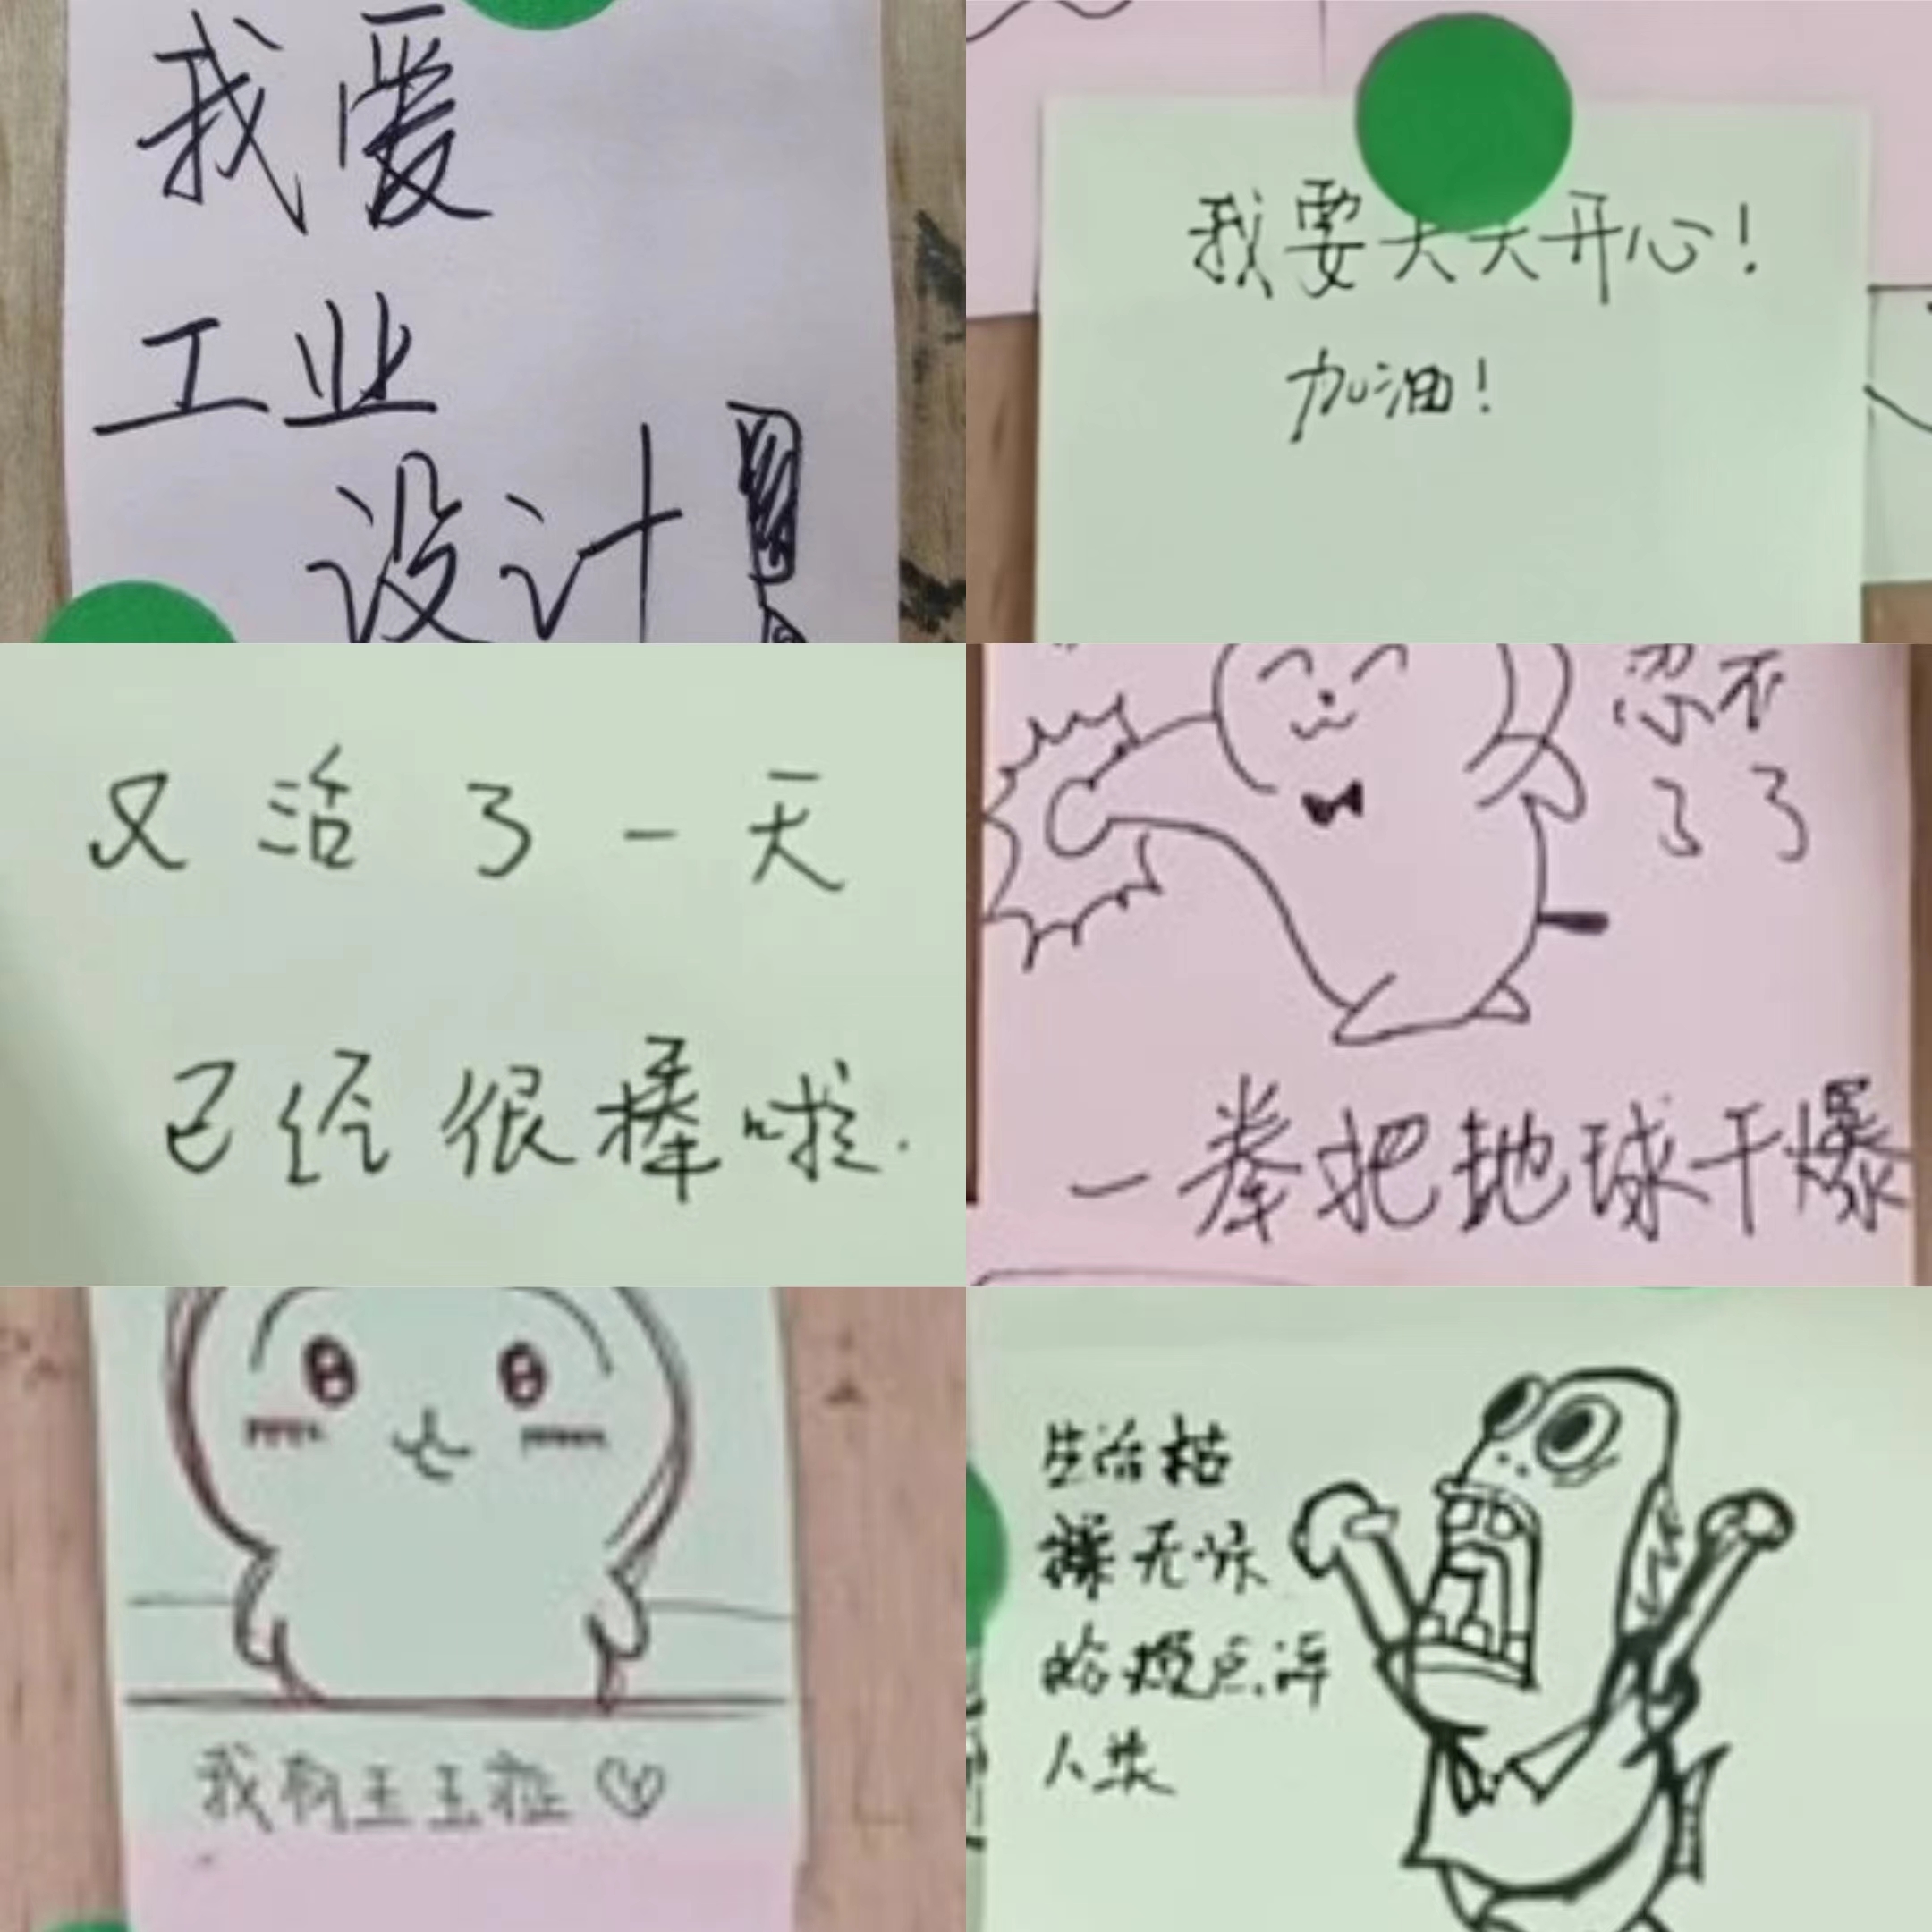 我爱
工业
设计
我要天天开心！
加油！
又活了一天
已经很棒啦.
忍不
了了
一拳把地球干爆
我有玉玉症♡
生活枯
燥无味
蛤蟆点评
人类